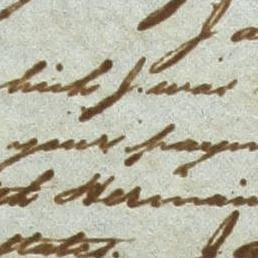 I a
hich I was
your paym
th Hermain
States. I